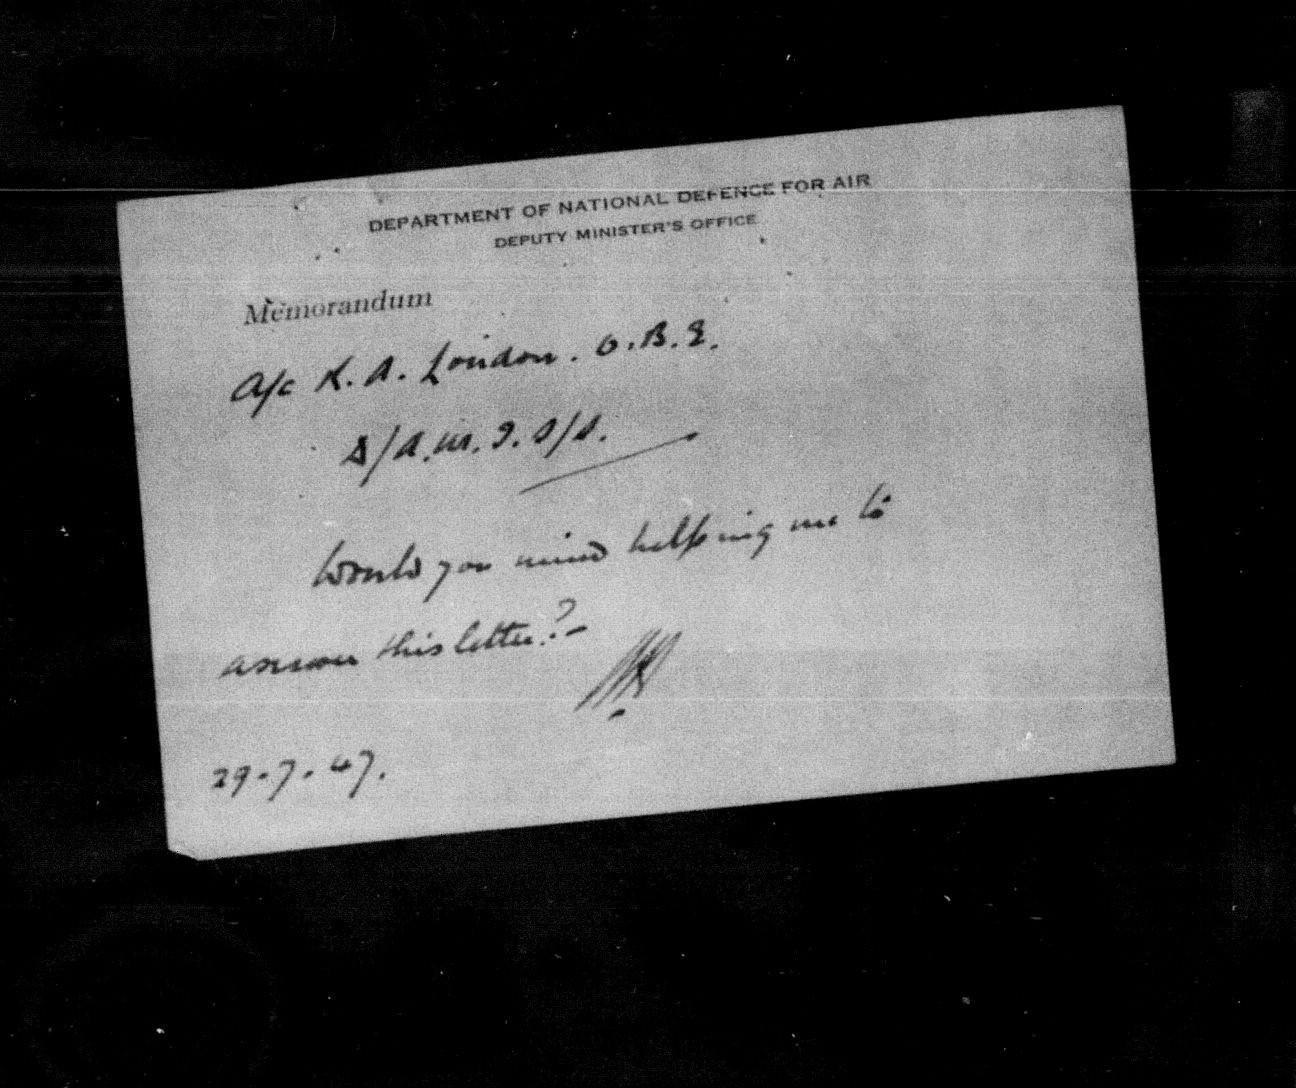 DEPARTMENT OF NATIONAL DEFENCE FOR AIR
DEPUTY MINISTER'S OFFICE
Memorandum
A/c K. A. London. O.B.E.
D/A.M.
Would you mind helping me to
answer this letter?-
29-7-47.